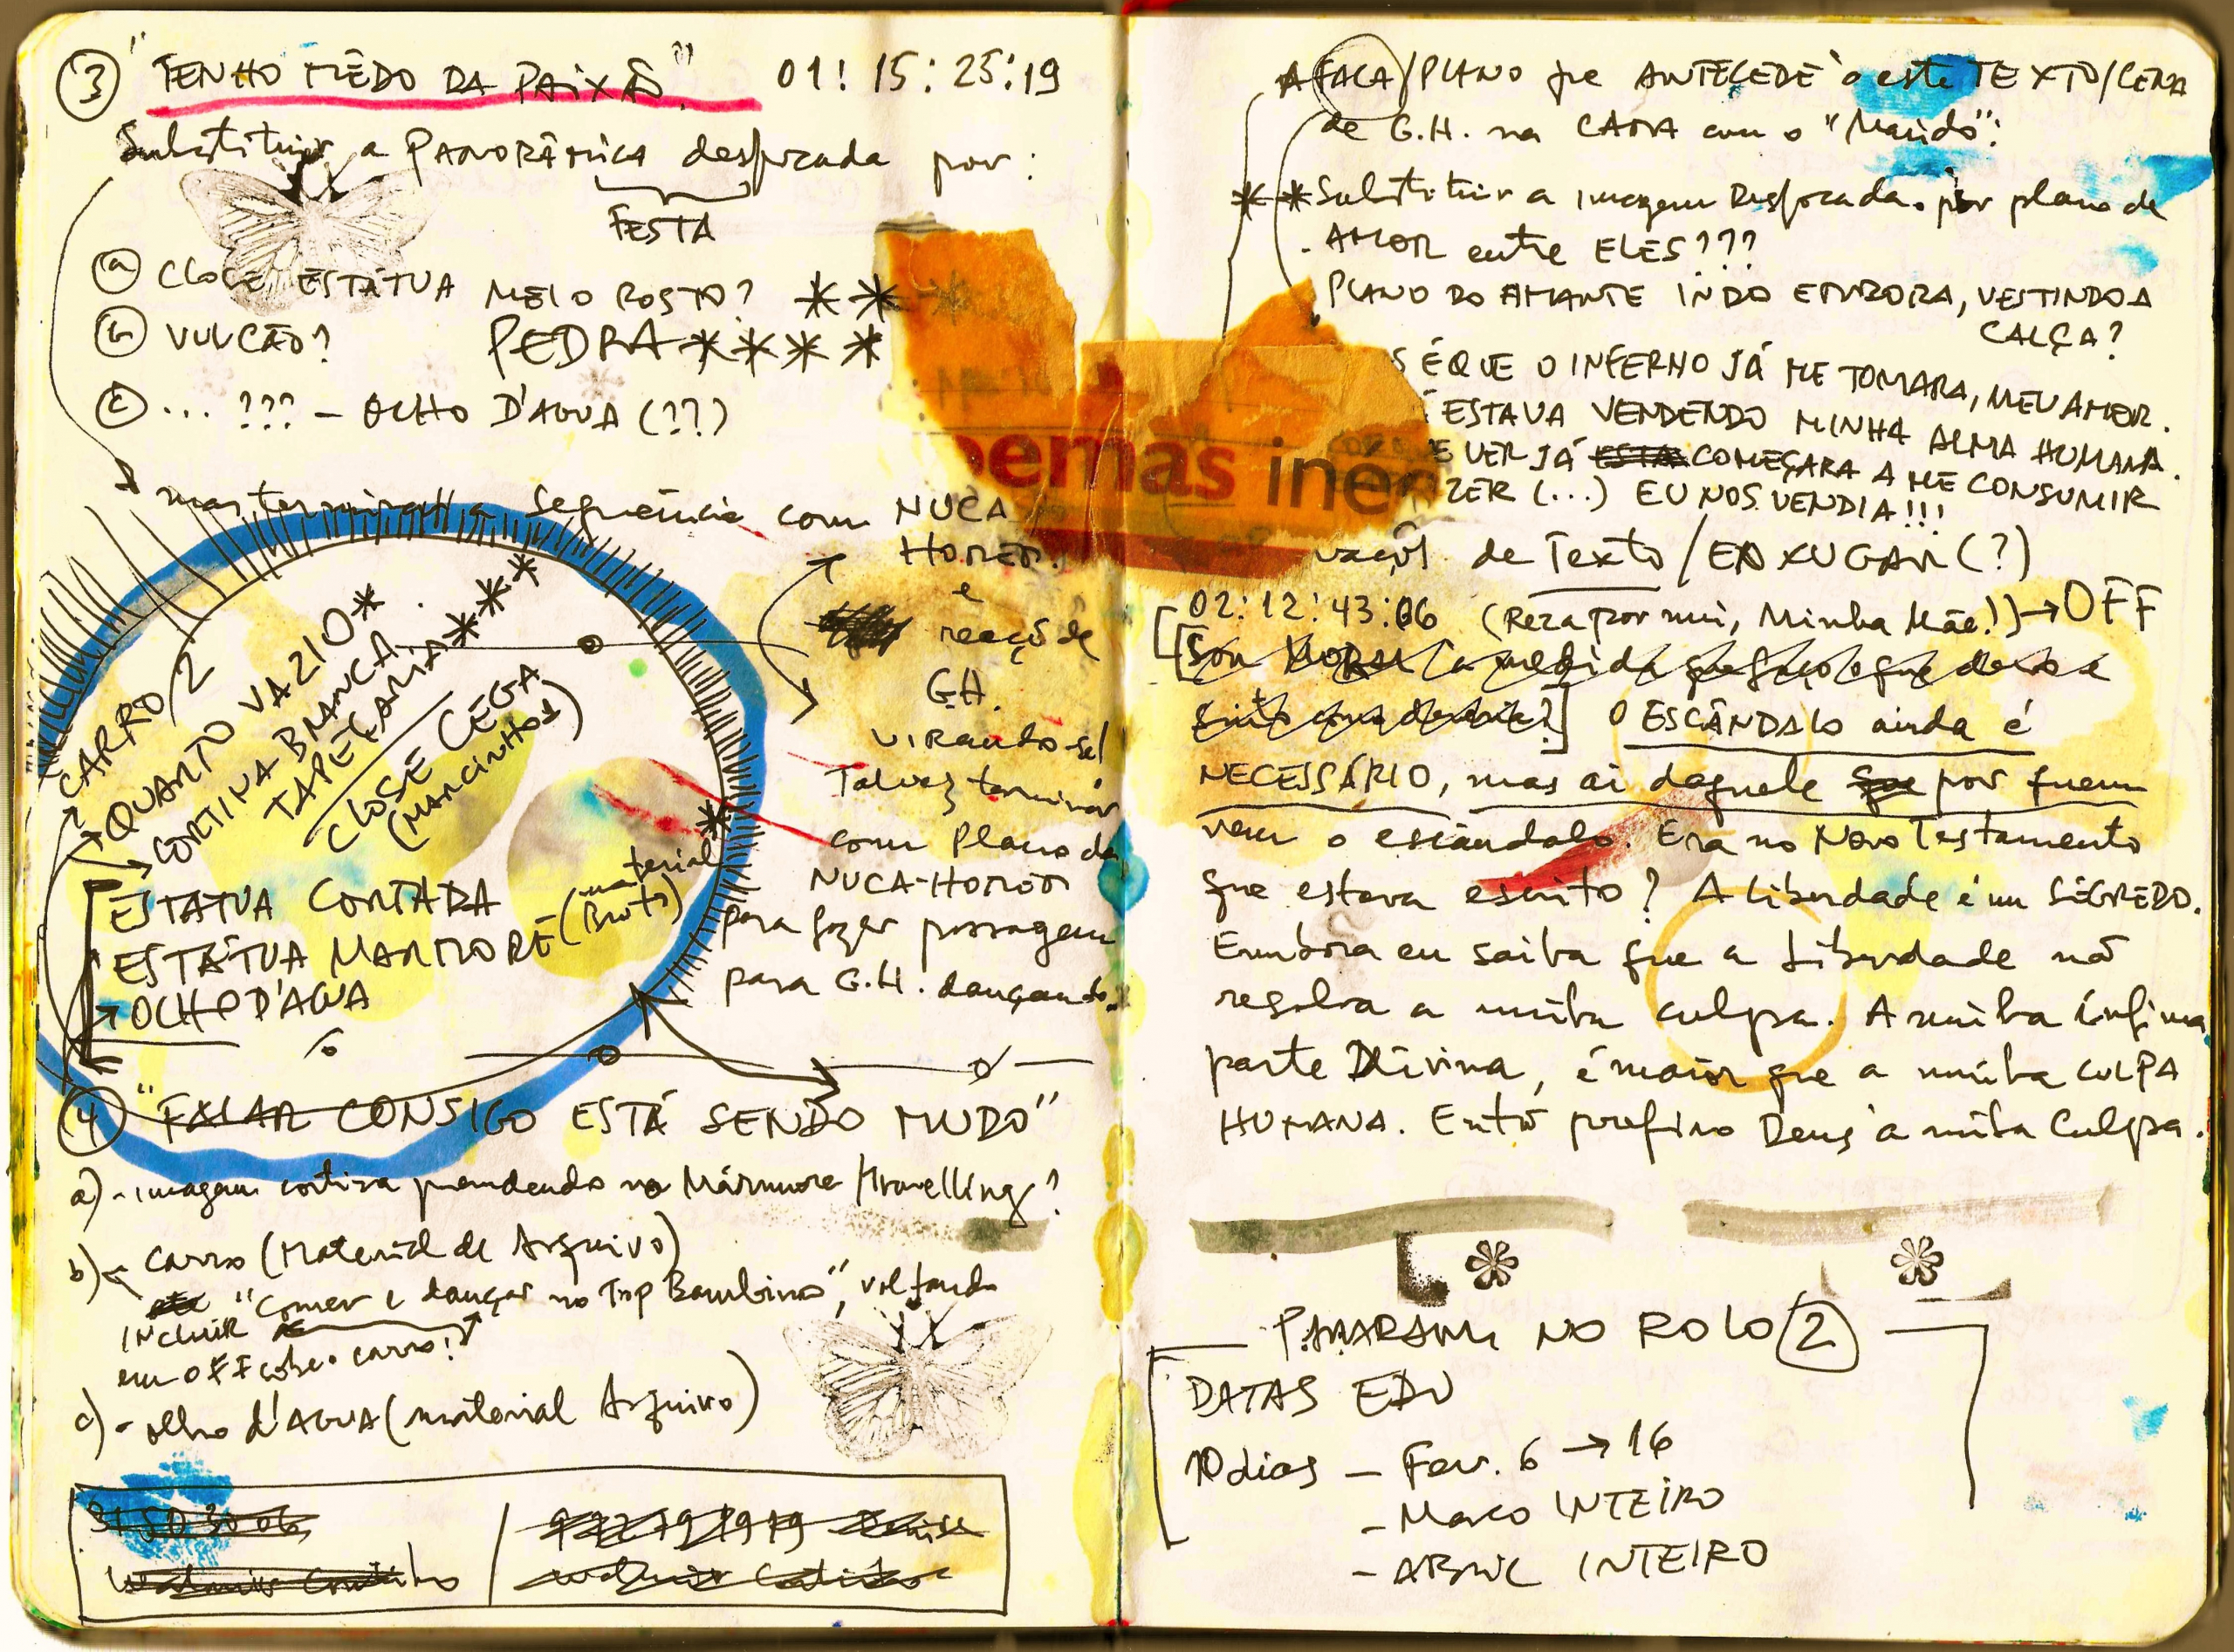 ③ "TENHO MÊDO DA PAIXÃO". 01:15:25:19
Substituir a PANORÂMICA desfocada por:
FESTA
ⓐ CLOSE ESTÁTUA MEIO ROSTO? ** *
ⓑ VULCÃO? PEDRA ****
ⓒ ... ??? – OLHO D'AGUA (??)
mas terminar a sequência com NUCA
HOMEM.
e
reação de
G.H.
virando-se!
Talvez terminar
com Plano da
NUCA-HOMEM
para fazer passagem
para G.H. dançando.
CARRO/2
QUARTO VAZIO*
CORTINA BRANCA.
TAPEÇARIA***
CLOSE CEGA
(MARCINHOS)
ESTÁTUA CORTADA
ESTÁTUA MARMORE (material Bruto)*
OLHO D'AGUA
④ "FALAR CONSIGO ESTÁ SENDO MUDO"
a) - imagem cortina prendendo no Mármore/travelling?
b) - carro (Material de Arquivo)
INCLUIR "Comer e dançar no Top Bambino", voltando
em OFF sobre o carro!
c) - olho d'AGUA (material Arquivo)
A FACA/PLANO que ANTECEDE a este TEXTO/CENA
de G.H. na CAMA com o "Marido":
** Substituir a imagem Desfocada por plano de
AMOR entre ELES???
PLANO DO AMANTE INDO EMBORA, VESTINDO A
CALÇA?
S É QUE O INFERNO JÁ ME TOMARA, MEU AMOR.
ESTAVA VENDENDO MINHA ALMA HUMANA.
E VER JÁ COMEÇARA A ME CONSUMIR
ZER (...) EU NOS VENDIA!!!
oemas inéd
de Texto/ENXUGAR (?)
02:12:43:06 (Reza por mim, Minha Mãe!) → OFF
O ESCÂNDALO ainda é
NECESSÁRIO, mas ai daquele por quem
vem o escândalo. Era no Novo Testamento
que estava escrito? A liberdade é um SEGREDO.
Embora eu saiba que a Liberdade não
resolva a minha culpa. A minha ínfima
parte Divina, é maior que a minha CULPA
HUMANA. Então prefiro Deus à minha Culpa.
PARARAM NO ROLO ②
DATAS EDU
10 dias – Fev. 6 → 16
- Março INTEIRO
- ABRIL INTEIRO